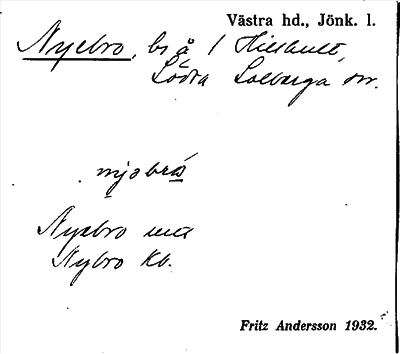 Västra hd., Jönk. l.
Nyebro, bs å 1 Hillhult,
Södra Solberga sn.
nyobro
Nyebro uca
Nybro Kb.
Fritz Andersson 1932.